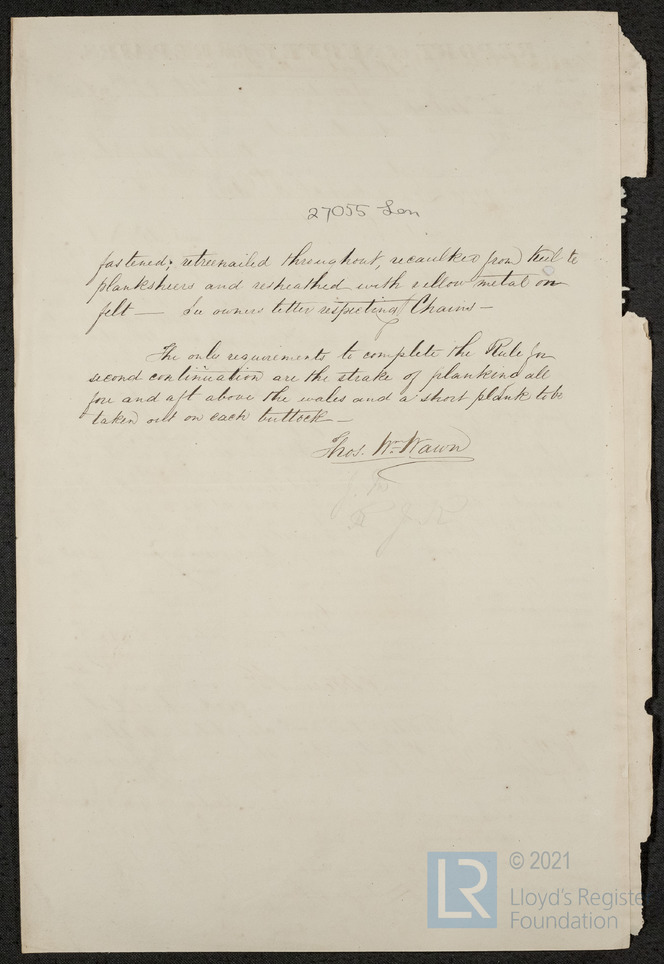 27055 Lon
fastened; retreenailed throughout, recaulked from keel to
planksheers and resheathed with yellow metal on
felt — See owners letter respecting Chains —
The only requirements to complete the Rule for
second continuation are the strake of planking all
fore and aft above the wales and a short plank to be
taken out on each buttock —
Thos. Wm. Wawn
© 2021
LR
Lloyd's Registe
Foundation